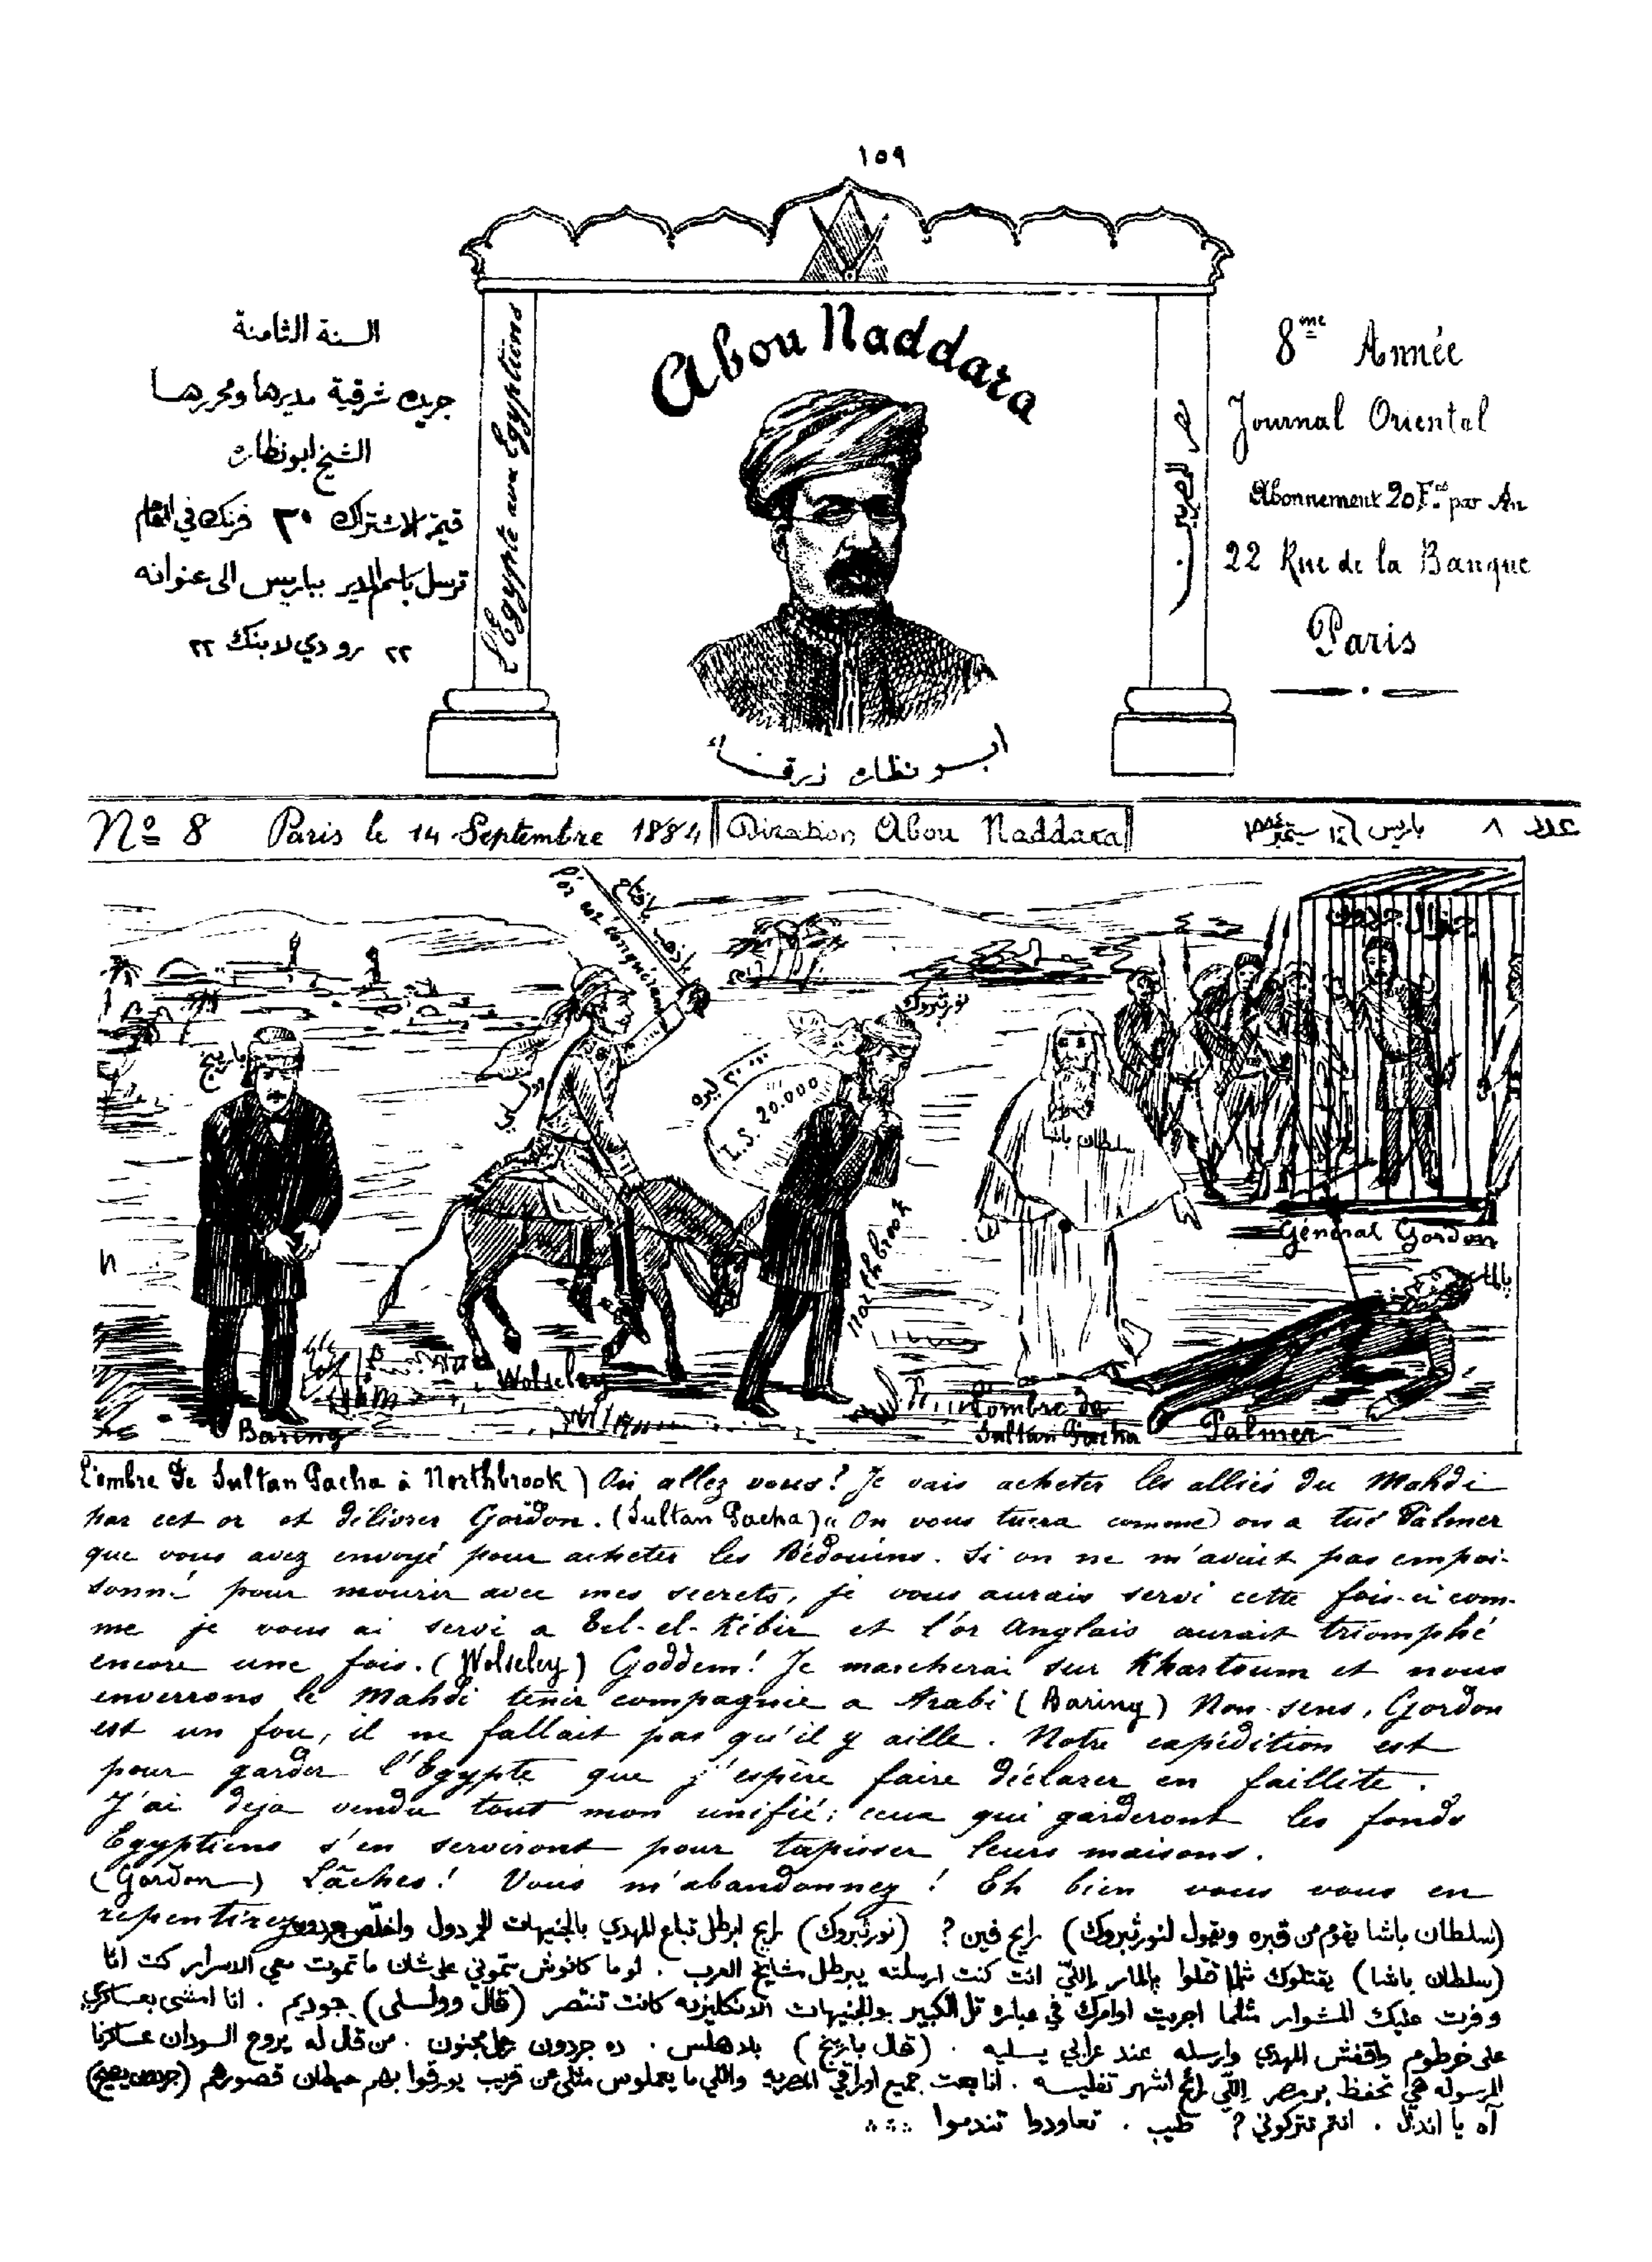 ١٥٩
السنة الثامنة
جريدة شرقية مديرها ومحررها
الشيخ ابونظارة
قيمة الاشتراك ٣٠ فرنك في العام
ترسل باسم المدير بباريس الى عنوانه
٢٢ رو دي لا بنك ٢٢
L'Egypte aux Egyptiens
Abou Naddara
مصر للمصريين
ابو نظارة زرقاء
8me Année
Journal Oriental
Abonnement 20 F. par An
22 Rue de la Banque
Paris
No 8 Paris le 14 Septembre 1884
Direction Abou Naddara
عدد ٨ باريس ١٤ سبتمبر
L'or est conquérant
بارنج
Baring
وولسلي
Wolseley
نورثبروك
L.S. 20.000
Northbrook
سلطان باشا
L'ombre de
Sultan Pacha
جنرال جردون
Général Gordon
Palmer
L'ombre de Sultan Pacha à Northbrook) Où allez vous? Je vais acheter les alliés du Mahdi
par cet or et délivrer Gordon. (Sultan Pacha) "On vous tuera comme on a tué Palmer
que vous avez envoyé pour acheter les Bédouins. Si on ne m'avait pas empoi-
sonné pour mourir avec mes secrets, je vous aurais servi cette fois-ci com-
me je vous ai servi a Tel-el-Kébir et l'or Anglais aurait triomphé
encore une fois. (Wolseley) Goddem! Je marcherai sur Khartoum et nous
enverrons le Mahdi tenir compagnie a Arabi (Baring) Non-sens, Gordon
est un fou, il ne fallait pas qu'il y aille. Notre expédition est
pour garder l'Egypte que j'espère faire déclarer en faillite.
J'ai deja vendu tout mon unifié; ceux qui garderont les fonds
Egyptiens s'en serviront pour tapisser leurs maisons.
(Gordon) Lâches! Vous m'abandonnez! Eh bien vous vous en
repentirez
(سلطان باشا يقوم من قبره ويقول لنورثبروك) رايح فين ? (نورثبروك) رايح ابرطل تباع المهدي بالجنيهات واخلّص جردون
(سلطان باشا) يقتلوك مثلما قتلوا بالمار إللّي انت كنت ارسلته يبرطل مشايخ العرب . لو ما كانوش سمّوني علىشان ما تموت معي الاسرار كنت انا
وفرت عليك المشوار مثلما اجريت اوامرك في عبارة تل الكبير والجنيهات الانكليزيه كانت تنتصر (قال وولسلي) جوديم . انا امشى بعساكري
على خرطوم واقفش المهدي وارسله عند عرابي يسليه . (قال بارنج) بلا هلس . ده جردون رجل مجنون . من قال له يروح السودان عساكرنا
المرسوله هي تحفظ بر مصر إللّي رائح اشهر تفليسه . انا بعت جميع اوراقي المصريه واللي ما يعملوس مثلي عن قريب يورقوا بهم حيطان قصورهم (جردون يصيح)
آه يا اندال . انتم تتركوني ? طيب . تعاودوا تندموا